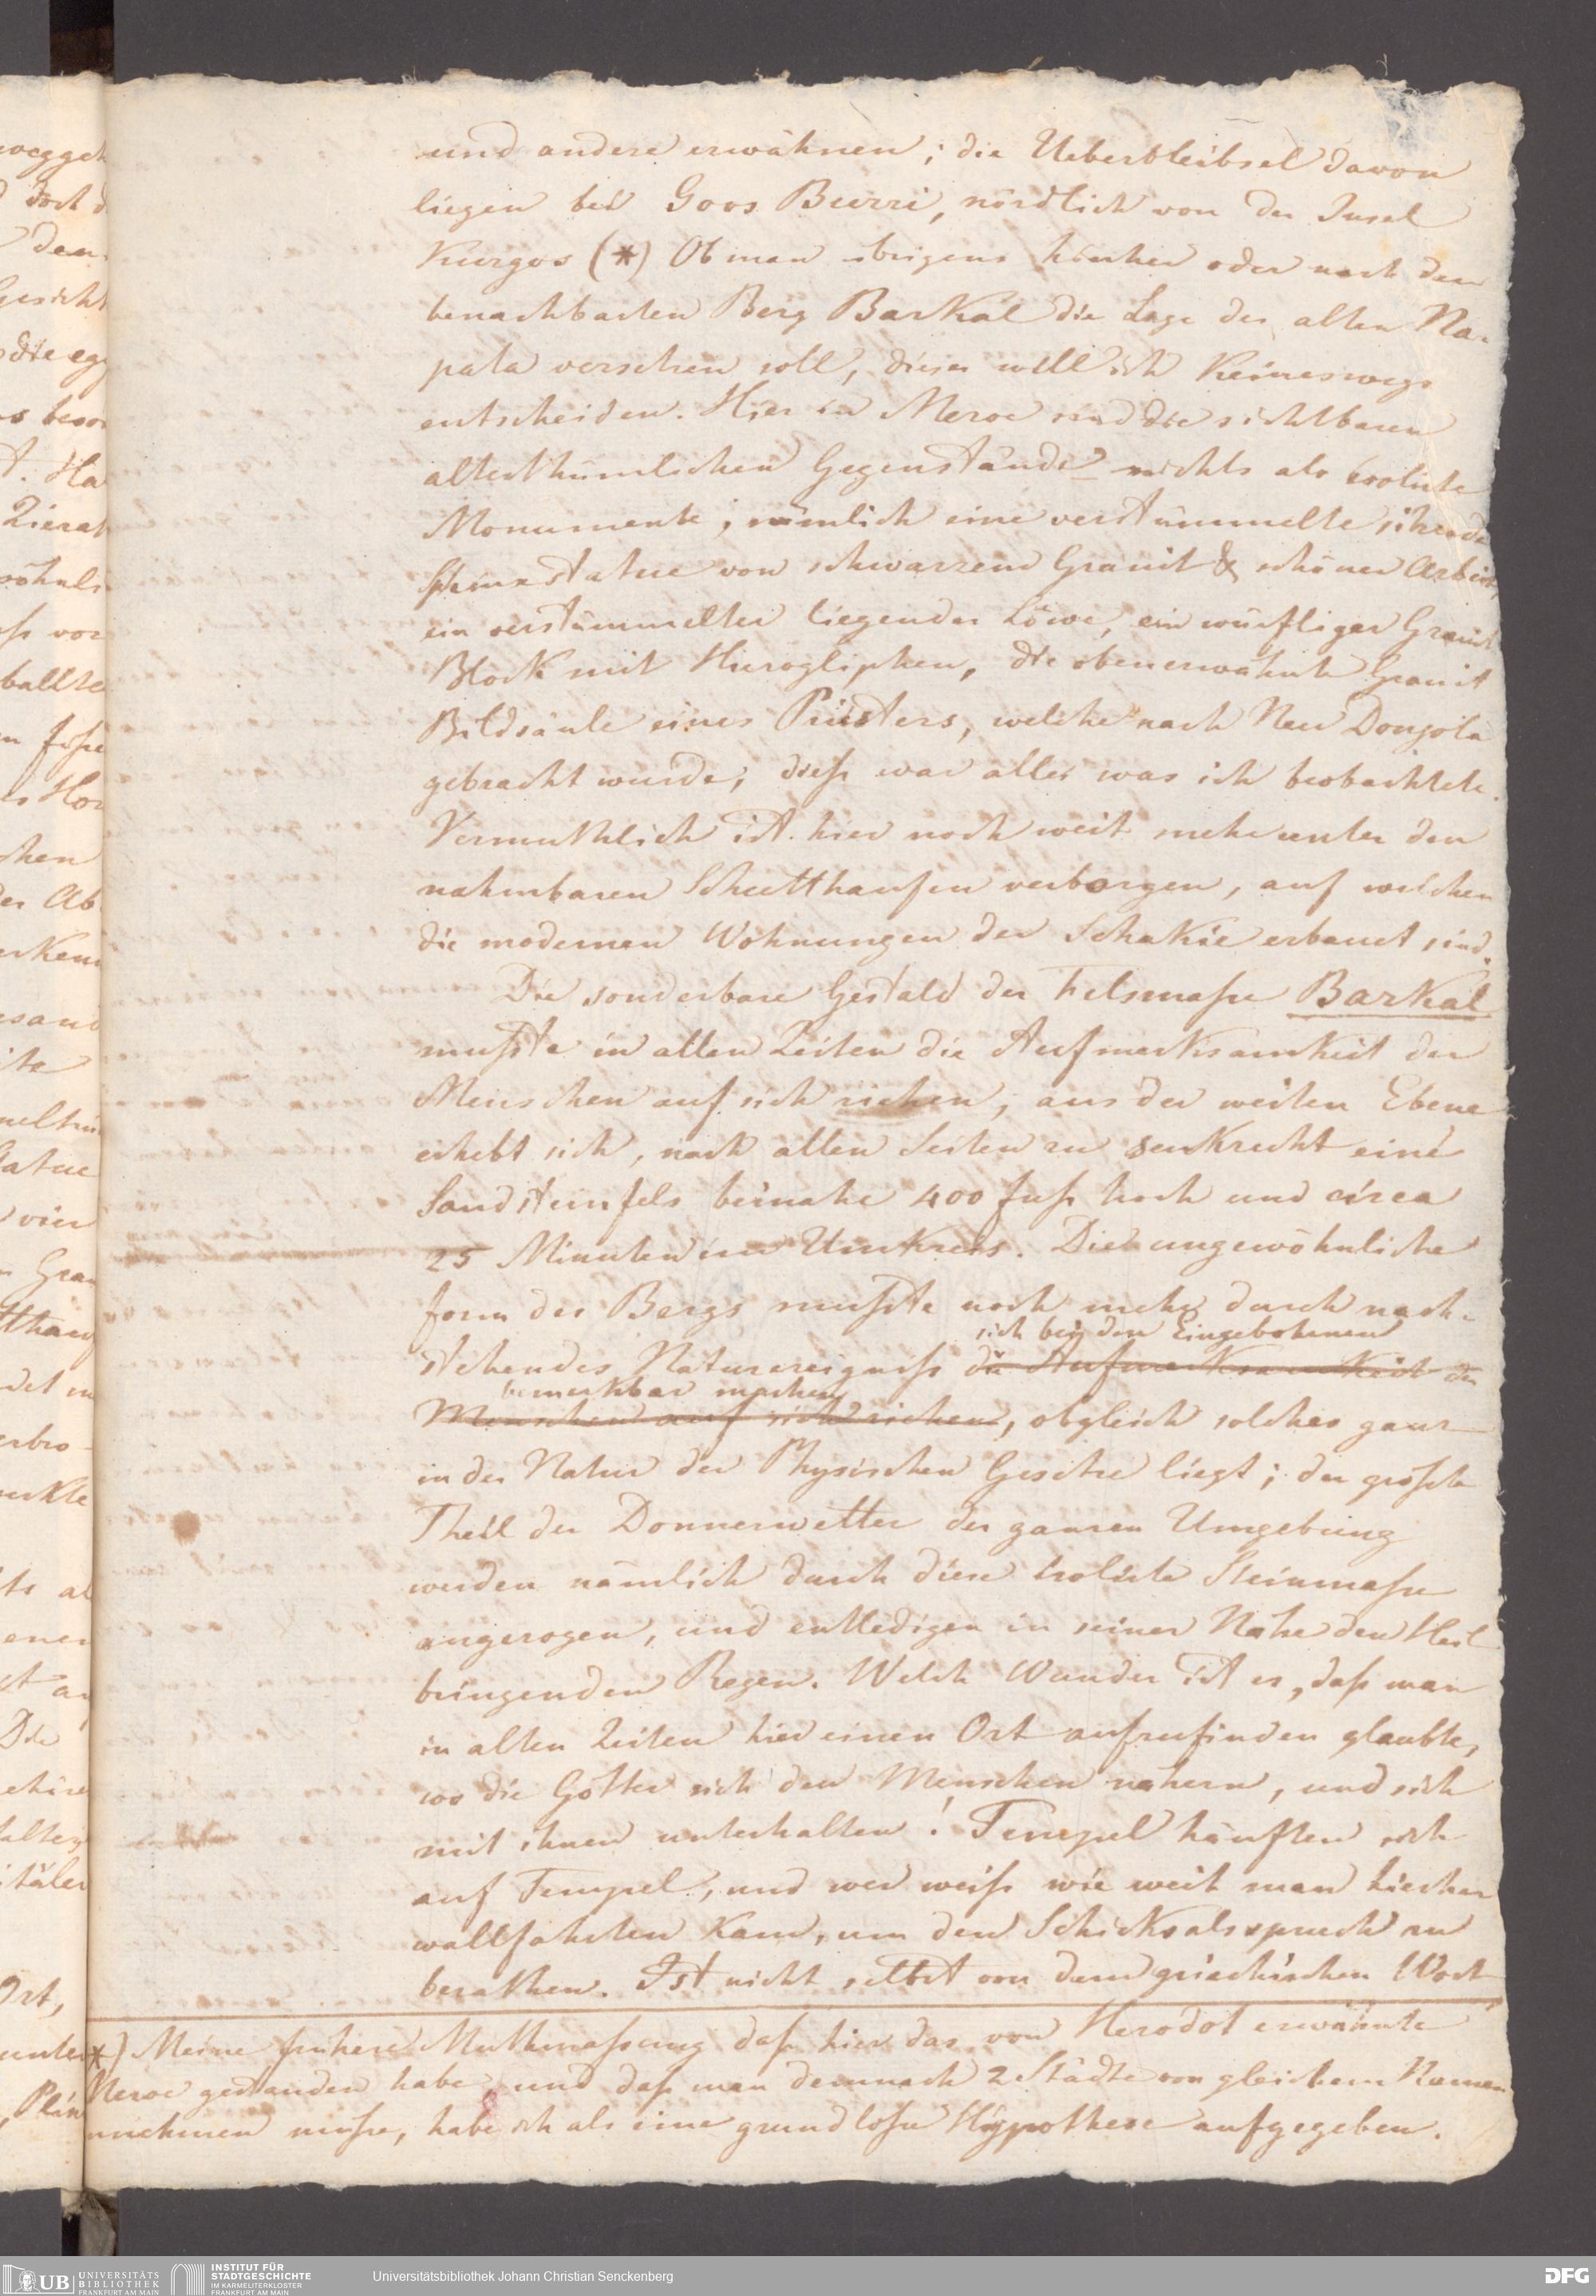 und andere erwähnen; die Ueberbleibsel davon
liegen bei Goos Burri, nördlich von der Insel
Kurgos (*) Ob man übrigens hierher oder nach dem
benachbarten Berg Barkal die Lage des alten Na-
pata versetzen soll, dieses will ich keineswegs
entscheiden. Hier in Meroe sind die sichtbaren
alterthümlichen Gegenstände nichts als isolirte
Monumente, nämlich eine verstümmelte sitzende
statue von schwarzem Granit & schöner Arbeit,
ein verstümmelter liegender Löwe, ein würfliger Granit
Block mit Hierogliphen, die obenerwähnte Granit
Bildsäule eines Priesters, welche nach Neu Dongola
gebracht wurde; dieß war alles was ich beobachtete.
Vermuthlich ist hier noch weit mehr unter den
nahmbaren Schutthaufen verborgen, auf welchen
die modernen Wohnungen der Schakie erbauet sind.
Die sonderbare Gestald der Felsmaße Barkal
mußte in allen Zeiten die Aufmerksamkeit der
Menschen auf sich ziehen; aus der weiten Ebene
erhebt sich, nach allen Seiten zu senkrecht eine
Sandsteinfels beinahe 400 fuß hoch und circa
25 Minuten im Umkreis. Die ungewöhnliche
form des Bergs mußte noch mehr durch nach-
sich bey den Eingebohrenen
stehendes Naturereigniß die Aufmerksamkeit der
bemerkbar machen
Menschen auf sich ziehen, obgleich solches ganz
in der Natur der Physischen Gesetze liegt; der größte
Theil der Donnerwetter der ganzen Umgebung
werden nämlich durch diese isolirte Steinmaße
angezogen, und entledigen in seiner Nähe den Heil
bringenden Regen. Welch Wunder ist es, daß man
in alten Zeiten hier einen Ort aufzufinden glaubte,
wo die Götter sich den Menschen nahern, und sich
mit ihnen unterhalten! Tempel häuften sich
auf Tempel, und wer weiß wie weit man hierher
wallfahrten kam, um den Schicksalsspruch zu
berathen. Ist nicht selbst von dem griechischen Wort
*) Meine frühere Muthmaßung daß hier das von Herodot erwähnte
Meroe gestanden habe und daß man demnach 2 Städte von gleichem Namen
annehmen müße, habe ich als eine grundloße Hÿpothese aufgegeben.
UB UNIVERSITÄTS
BIBLIOTHEK
FRANKFURT AM MAIN
INSTITUT FÜR
STADTGESCHICHTE
IM KARMELITERKLOSTER
FRANKFURT AM MAIN
Universitätsbibliothek Johann Christian Senckenberg
DFG